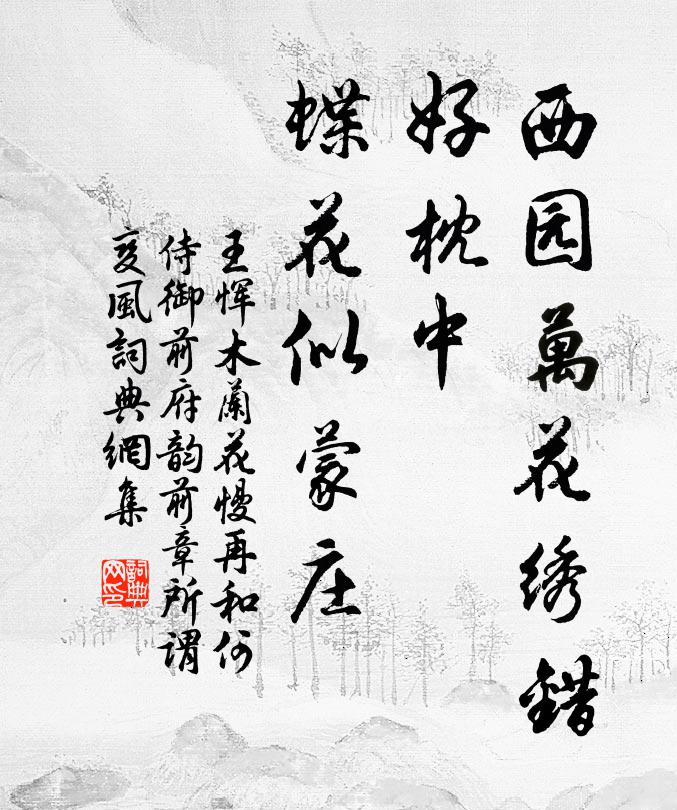 西园萬花绣錯
好枕中
蝶花似蒙庄
王恽木蘭花慢再和何
侍御前府韵前章所谓
变風詞典網集
詞典
网印